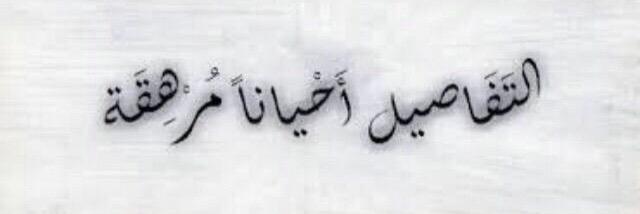 التَفَاصيل أَحْياناً مُرْهِقَة